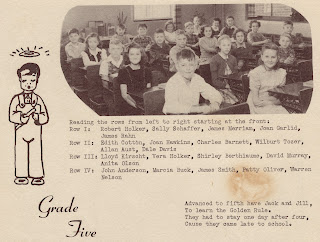 Reading the rows from left to right starting at the front:
Row I: Robert Holker, Sally Schaffer, James Merriam, Joan Garlid,
James Rahn
Row II: Edith Cotton, Joan Hawkins, Charles Barnett, Wilburt Toser,
Allen Aust, Dale Davis
Row III: Lloyd Eirscht, Vera Holker, Shirley Berthiaume, David Murray,
Anita Olson
Row IV: John Anderson, Marcia Buck, James Smith, Patty Oliver, Warren
Nelson
Grade
Five
Advanced to fifth Have Jack and Jill,
To learn the Golden Rule.
They had to stay one day after four,
Cause they came late to school.